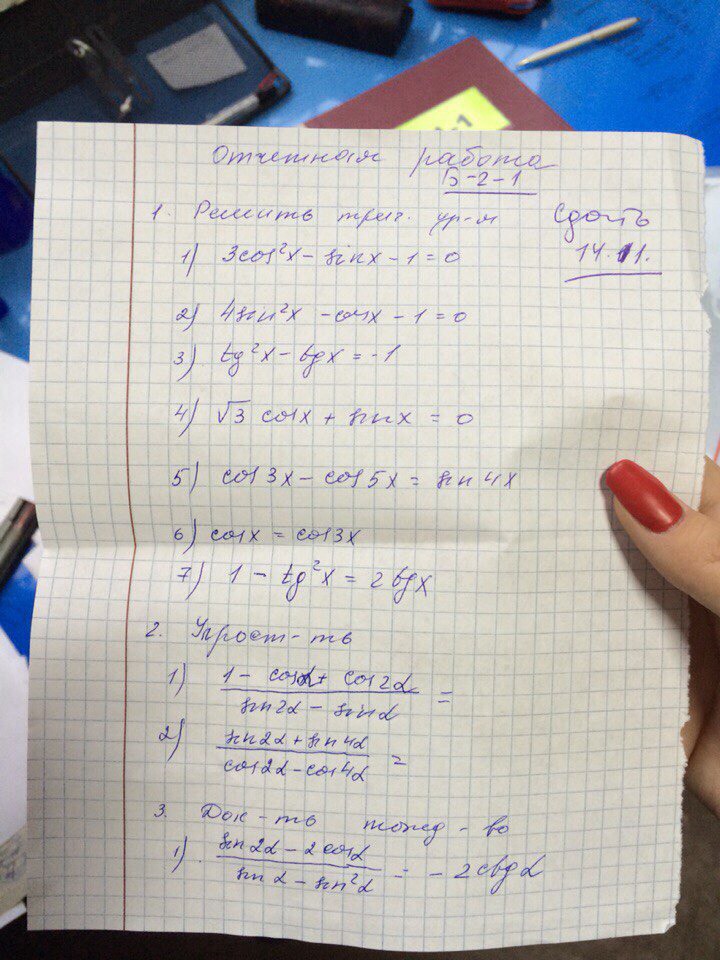 Отчетная работа
Б-2-1
1. Решить триг. ур-я Сдать
14.11.
1) 3cos²x - sinx - 1 = 0
2) 4sin²x - cosx - 1 = 0
3) tg²x - tgx = -1
4) √3 cosx + sinx = 0
5) cos3x - cos5x = sin4x
6) cosx = cos3x
7) 1 - tg²x = 2tgx
2. Упрост-ть
1) (1 - cosα + cos2α)/(sin2α - sinα) =
2) (sin2α + sin4α)/(cos2α - cos4α) =
3. Док-ть тожд-во
1). (sin2α - 2cosα)/(sinα - sin²α) = -2ctgα